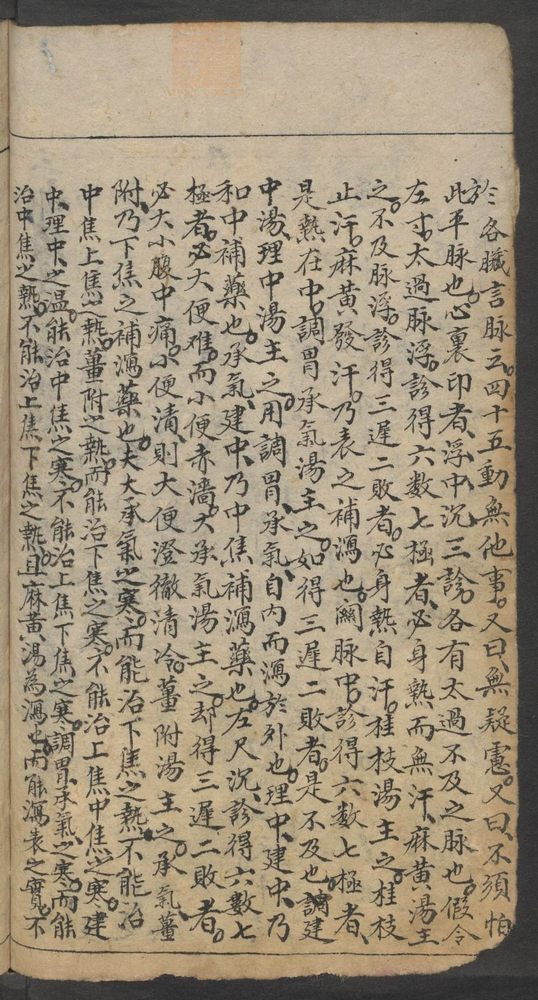 於各臟言脉云四十五動無他事又曰無疑慮又曰不須怕
此平脉也心裏印者浮中沉三診各有太過不及之脉也假令
左寸太過脉浮診得六数七極者必身熱而無汗麻黄湯主
之不及脉浮診得三遲二敗者必身熱自汗桂枝湯主之桂枝
止汗麻黄發汗乃表之補瀉也関脉中診得六数七極者
是熱在中調胃承氣湯主之如得三遲二敗者是不及也建
中湯理中湯主之用調胃承氣自内而瀉於外也理中建中乃
和中補藥也承氣建中乃中焦補瀉藥也左尺沉診得六数七
極者必大便难而小便赤濇大承氣湯主之却得三遲二敗者
必大小腹中痛小便清則大便澄徹清冷薑附湯主之承氣薑
附乃下焦之補瀉藥也夫大承氣之寒而能治下焦之熱不能治
中焦上焦之熱薑附之熱而能治下焦之寒不能治上焦中焦之寒建
中理中之温能治中焦之寒不能治上焦下焦之寒調胃承氣之寒而能
治中焦之熱不能治上焦下焦之熱且麻黄湯為瀉也而能瀉表之實不